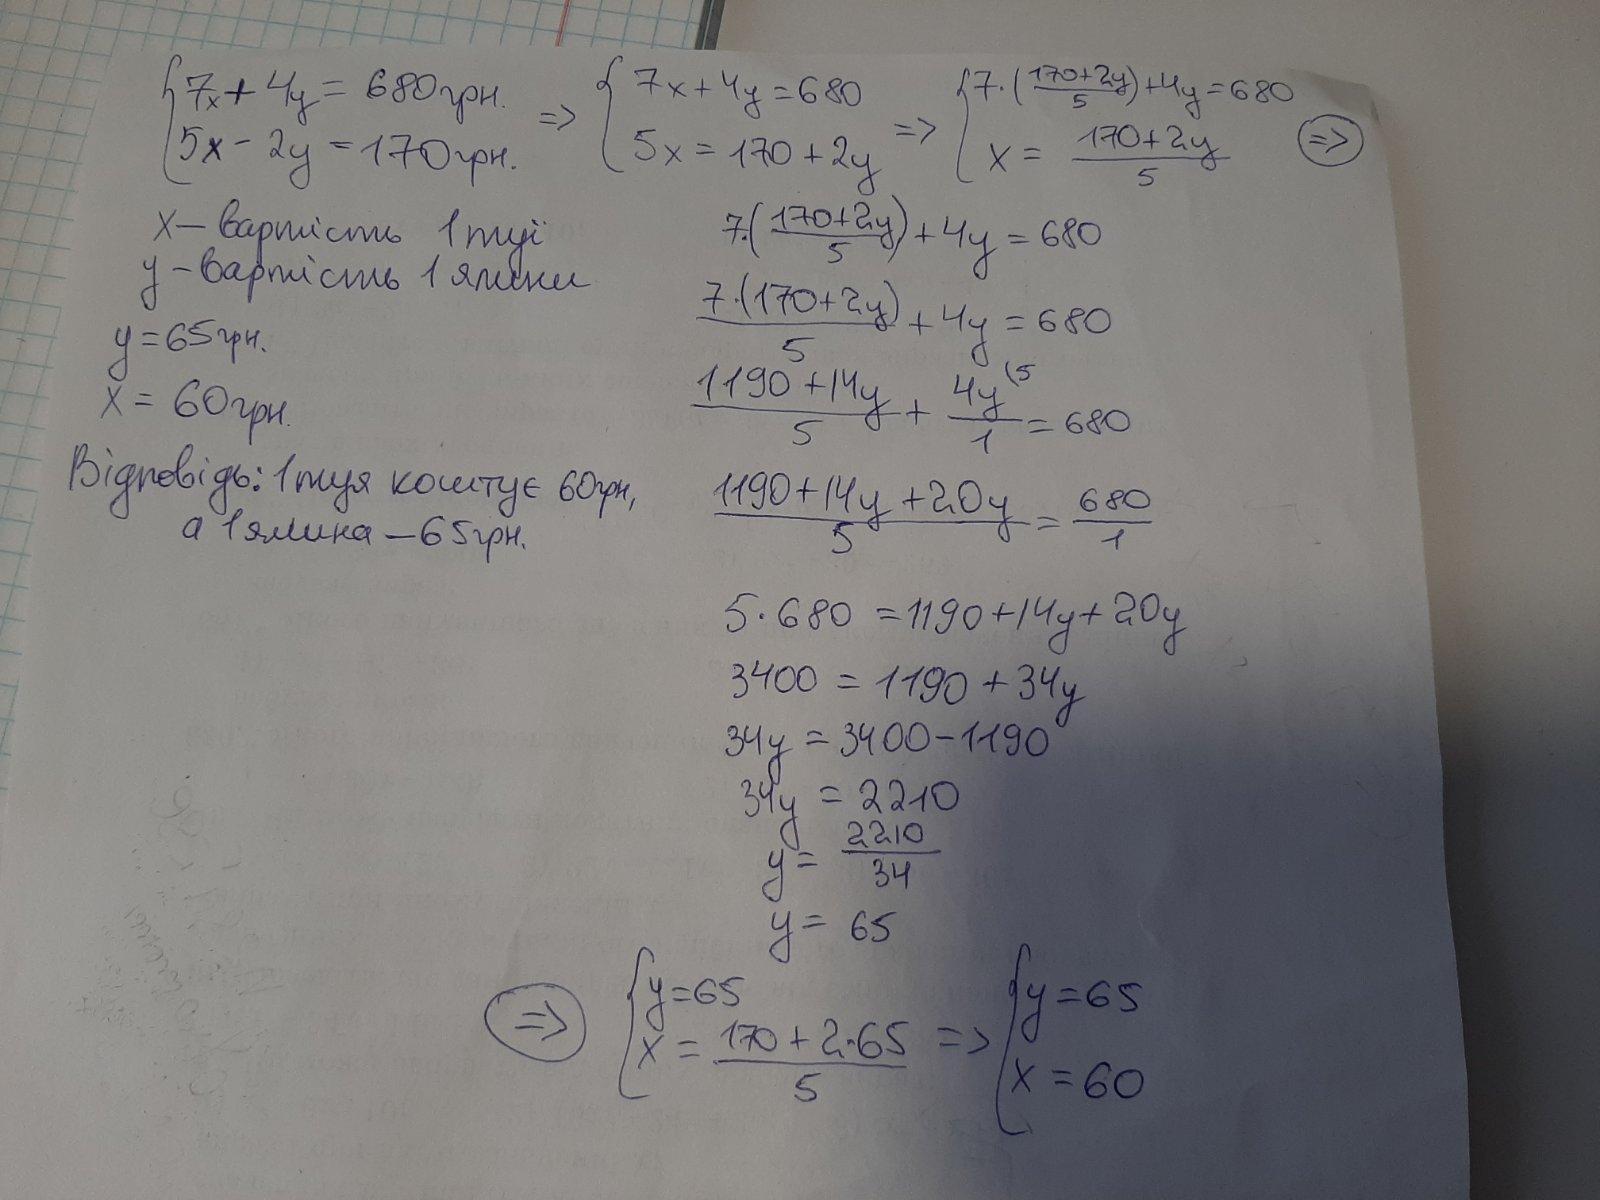 7x + 4y = 680грн.
5x - 2y = 170грн.
=>
7x + 4y = 680
5x = 170 + 2y
=>
7·(170+2y/5)+4y=680
x = 170+2y/5
=>
x – вартість 1 туї
y – вартість 1 ялини
y = 65грн.
x = 60грн.
Відповідь: 1 туя коштує 60грн,
а 1 ялина – 65грн.
7·(170+2y/5) + 4y = 680
7·(170+2y)/5 + 4y = 680
1190+14y/5 + 4y(5/1 = 680
1190+14y+20y/5 = 680/1
5·680 = 1190+14y+20y
3400 = 1190 + 34y
34y = 3400-1190
34y = 2210
y = 2210/34
y = 65
=>
y=65
x = 170 + 2·65/5
=>
y = 65
x = 60